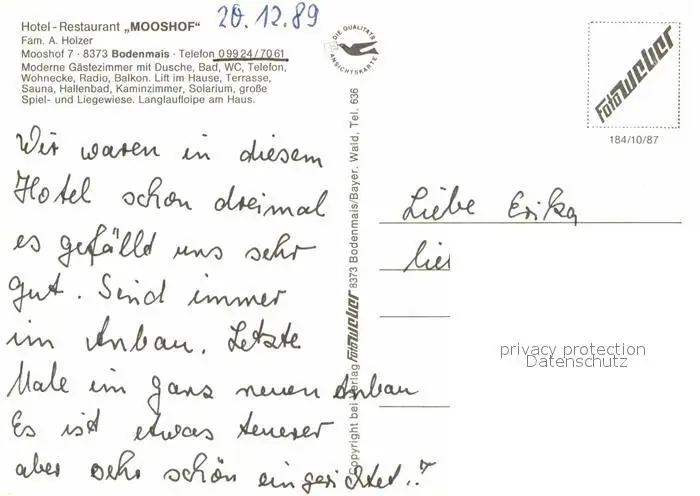 20.12.89
Hotel-Restaurant „MOOSHOF“
Fam. A. Holzer
Mooshof 7 · 8373 Bodenmais · Telefon 09924/7061
Moderne Gästezimmer mit Dusche, Bad, WC, Telefon,
Wohnecke, Radio, Balkon. Lift im Hause, Terrasse,
Sauna, Hallenbad, Kaminzimmer, Solarium, große
Spiel- und Liegewiese. Langlaufloipe am Haus.
DIE QUALITÄTS
ANSICHTSKARTE
Foto Weber
184/10/87
Wir waren in diesem
Hotel schon dreimal
es gefällt uns sehr
gut. Sind immer
im Anbau. Letzte
Male im ganz neuen Anbau
Es ist etwas teuerer
aber sehr schön eingerichtet.
Copyright bei Verlag Foto Weber 8373 Bodenmais/Bayer. Wald, Tel. 636
Liebe Erika
privacy protection
Datenschutz